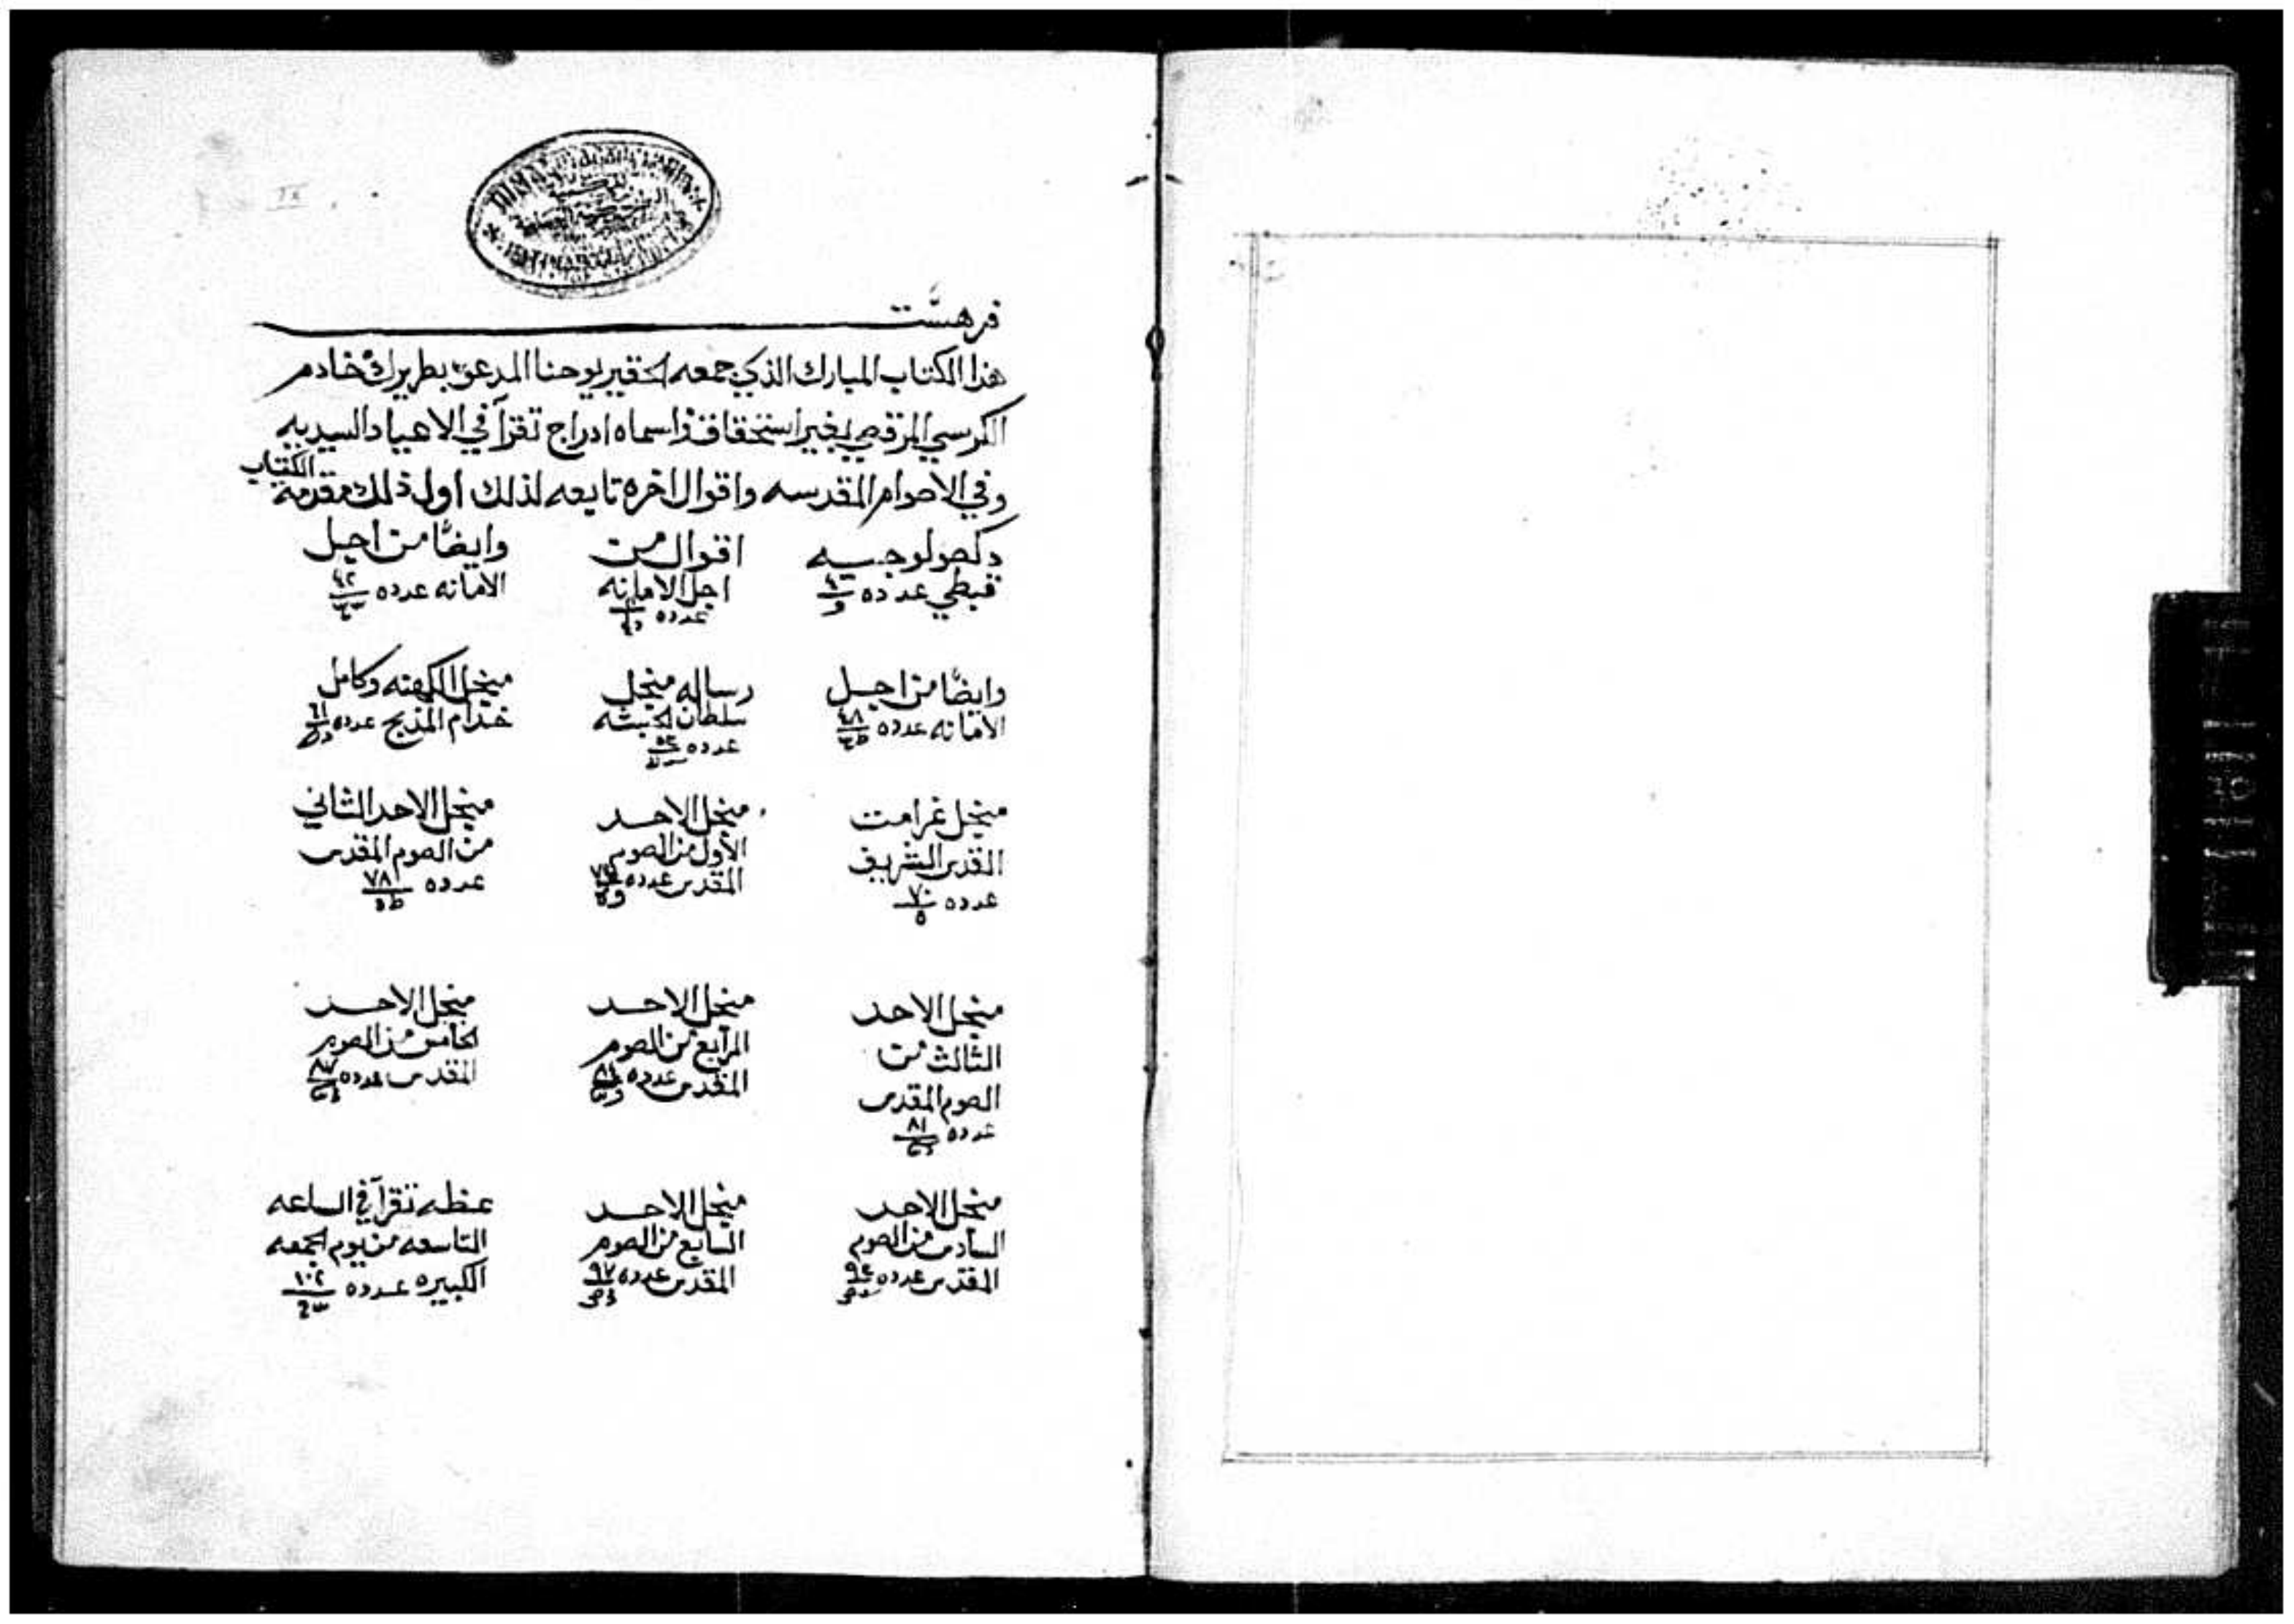 فرهست
هذا الكتاب المبارك الذي جمعه الحقير يوحنا المدعو بطريرك خادم
الكرسي المرقصي بغير استحقاق واسماه ادراج تقرآ في الاعياد السيديه
وفي الاصوام المقدسه واقوال اخره تابعه لذلك اول ذلك مقدمة الكتاب
دكصولوجيه
قبطي عدده
اقوال من
اجل الامانه
عدده
وايضًا من اجل
الامانه عدده ٤٢
وايضًا من اجل
الامانه عدده ٤٨
رساله منجل
سلطان الحبشه
عدده ٥٤
منجل الكهنه وكامل
خدام المذبح عدده ٦٤
منجل غرامت
القدس الشريف
عدده ٧٠
منجل الاحد
الأول من الصوم
المقدس عدده
منجل الاحد الثاني
من الصوم المقدس
عدده ٧٨
منجل الاحد
الثالث من
الصوم المقدس
عدده ٨١
منجل الاحد
الرابع من الصوم
المقدس عدده
منجل الاحد
الخامس من الصوم
المقدس عدده ٨٧
منجل الاحد
السادس من الصوم
المقدس عدده ٩٤
منجل الاحد
السابع من الصوم
المقدس عدده ٩٧
عظه تقرآ في الساعه
التاسعه من يوم الجمعه
الكبيره عدده ١٠٢